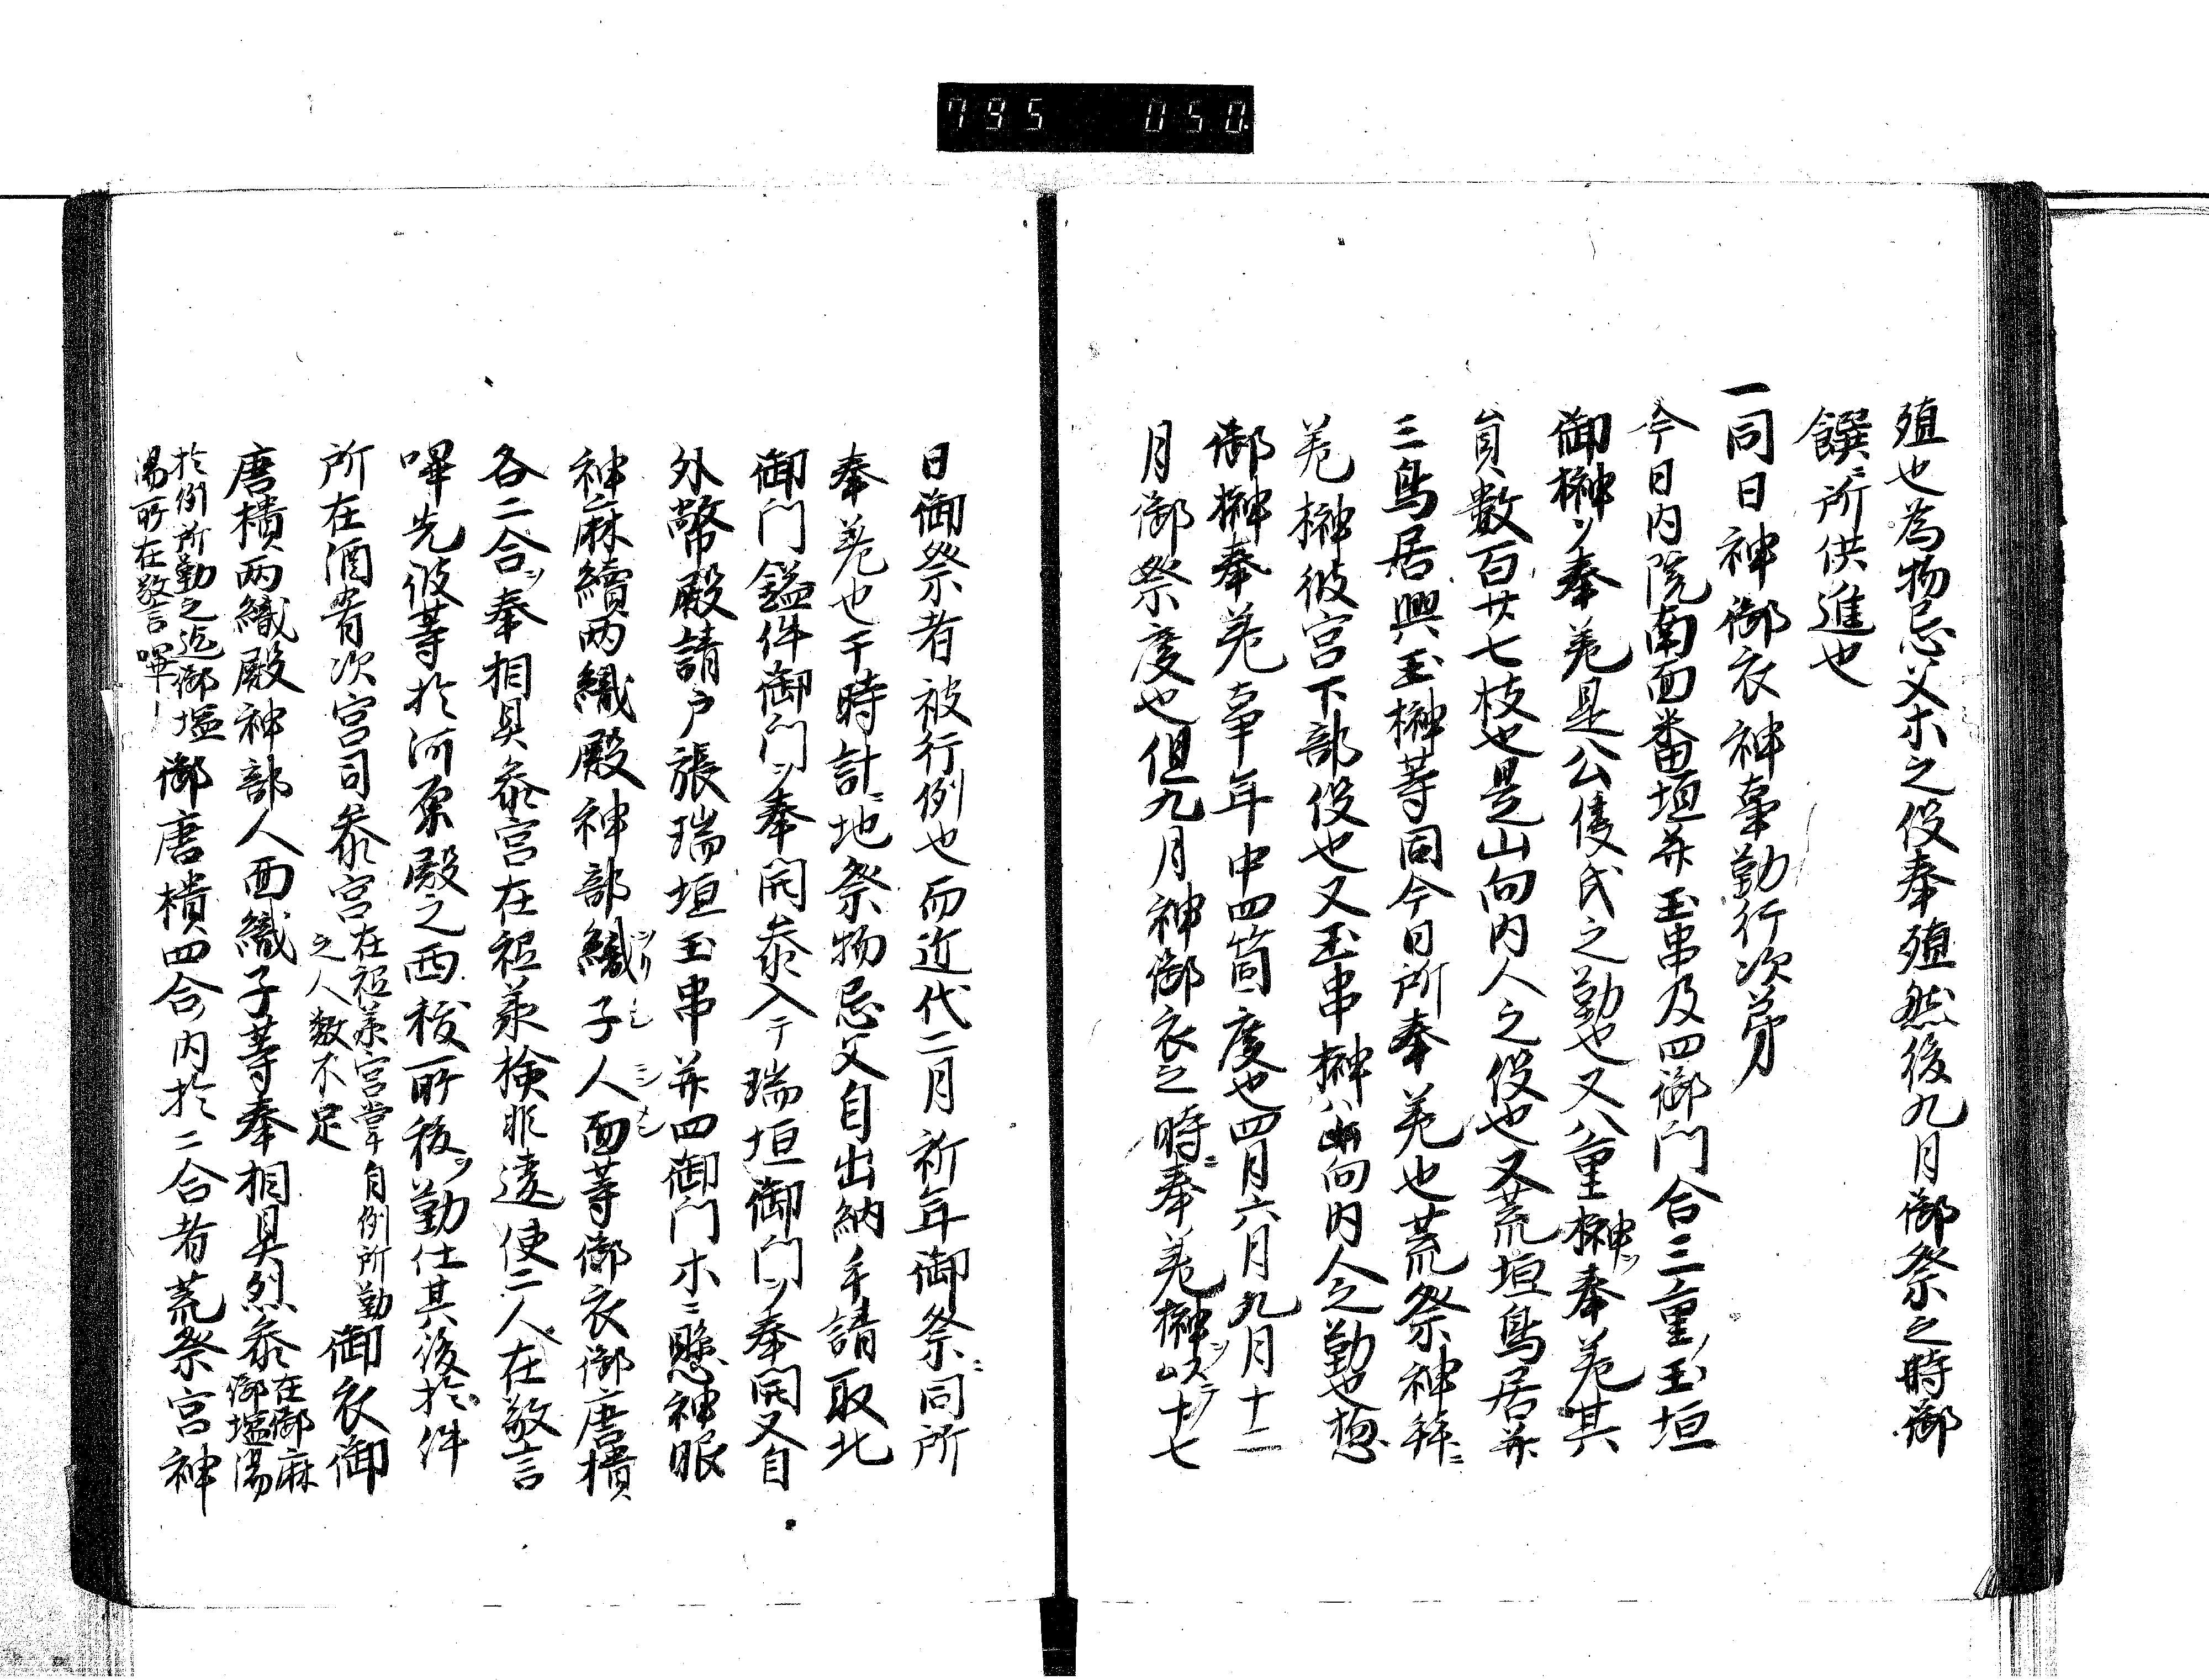 795 050
殖也為物忌父木之役奉殖然後九月御祭之時御
饌ニ所供進也
一同日神御衣神事勤行次第
今日内院南面番垣并玉串及四御門合三重玉垣
御榊ヲ奉差是公侯氏之勤也又八重榊ヲ奉差其
員數百廿七枝也是山向内人之役也又荒垣鳥居并
三鳥居輿玉榊等同今日所奉差也荒祭神拜ニ
差榊彼宮下部役也又玉串榊ハ山向内人之勤也惣
御榊奉差事年中四箇度也四月六月九月十二
月御祭度也但九月神御衣之時ニ奉差榊ヲ以テ十七
日御祭者被行例也而近代二月祈年御祭ニ同所
奉差也于時計地祭物忌父自出納手請取北
御門鎰件御門ヲ奉開参入テ瑞垣御門ヲ奉開又自
外幣殿請戸張瑞垣玉串并四御門木ニ懸神服
神麻續両織殿神部織子人面等御衣御唐櫃
各二合ヲ奉相具参宮在祗承検非違使二人在敬言
嗶先彼等於河原殿之西祓所祓ヲ勤仕其後於件
所在酒肴次宮司参宮在祗承宮掌自例所勤之人数不足御衣御
唐櫃両織殿神部人面織子等奉相具烈参在御麻御塩湯
於例所勤之迄御塩湯所在敬言嗶御唐櫃四合内於二合者荒祭宮神